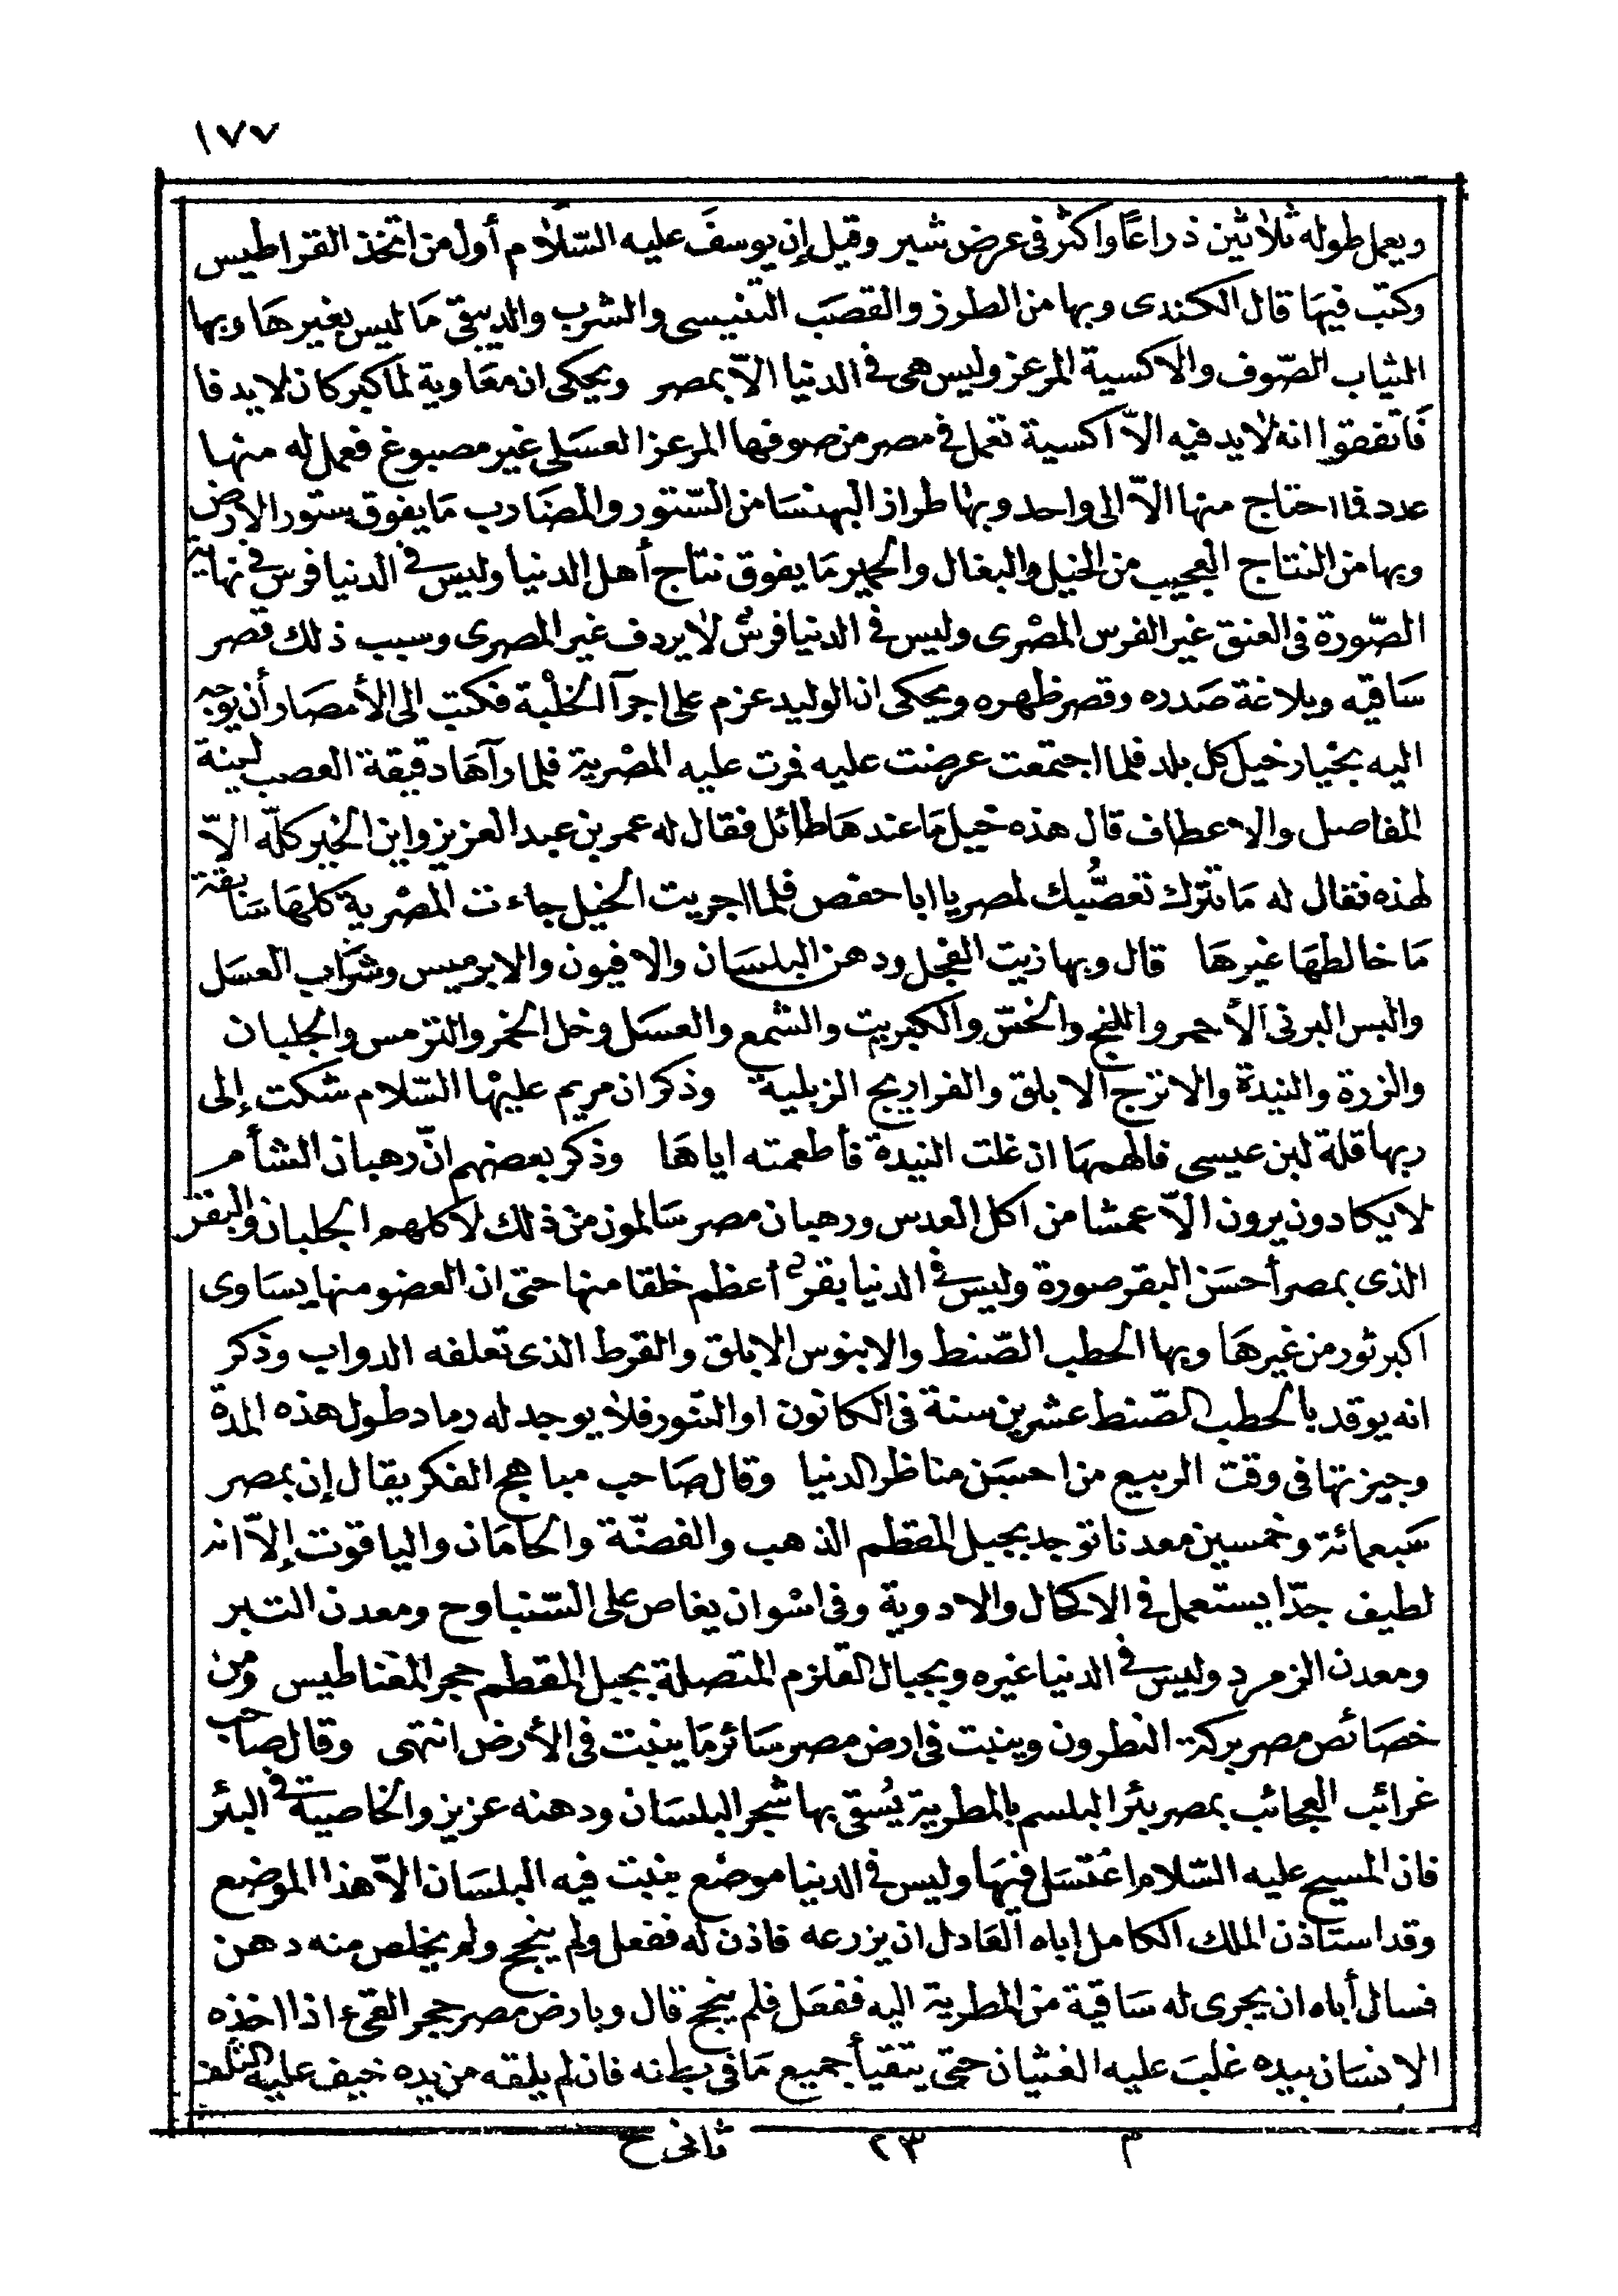 ١٧٧
ويعمل طوله ثلاثين ذراعًا واكثر فى عرض شبر وقيل إن يوسفَ عليه السّلام أول من اتخذ القراطيس
وكتب فيهَا قال الكندى وبها من الطرز والقصَب التنيسى والشرب والدبيقى مَا ليس بغيرهَا وبها
الثياب الصّوف والاكسية المرعز وليس هى فى الدنيا الاّ بمصر ويحكى ان معَاوية لما كبر كان لا يدفا
فَاتفقوا انه لا يدفيه الاّ اكسية تعمل فى مصر من صوفها المرعز العسَلى غير مصبوغ فعمل له منها
عدد فما احتاج منها الاّ الى واحد وبها طراز البهنسَا من السّتور والمضَارب مَا يفوق ستور الارض
وبها من النتاج العجيب من الخيل والبغال والحمير مَا يفوق نتاج أهل الدنيا وليس فى الدنيا فرس فى نهاية
الصّورة فى العنق غير الفرس المصْرى وليس فى الدنيا فرسٌ لا يردف غير المصرى وسبب ذلك قصر
سَاقيه وبلاغة صَدره وقصر ظهره ويحكى ان الوليد عزم على اجرآ الخلْبة فكتب الى الأمصَار أن يوجه
اليه بخيار خيل كل بلد فلما اجتمعت عرضت عليه فمرت عليه المصْرية فلما رآهَا دقيقة العصب لينة
المفاصل والاعطاف قال هذه خيل مَا عندهَا طائل فقال له عمر بن عبد العزيز واين الخير كلّه الاّ
لهذه فقال له مَا تترك تعصُّبك لمصر يا ابا حفص فلما اجريت الخيل جاءت المصْرية كلهَا سَابقة
مَا خالطهَا غيرهَا قال وبها زيت الفجل ودهن البلسَان والافيون والابرميس وشرَاب العسَل
والبسر البرنى الأحمر واللبخ والخسّ والكبريت والشمع والعسَل وخل الخمر والترمس والجلبان
والزرة والنيدة والاترج الابلق والفراريج الزبلية وذكر ان مريم عليهْا السّلام شكت إلى
ربها قلة لبن عيسى فالهمهَا ان غلت النيدة فأطعمته اياهَا وذكر بعضهم انّ رهبان الشأم
لا يكادون يرون الاّ عمشا من اكل العدس ورهبان مصر سَالمون من ذلك لاكلهم الجلبان والبقر
الذى بمصر أحسَن البقر صورة وليس فى الدنيا بقرٌ أعظم خلقا منها حتى ان العضو منها يسَاوى
اكبر ثور من غيرهَا وبها الحطب الصّنط والابنوس الابلق والقرط الذى تعلفه الدواب وذكر
انه يوقد بالحطب الصّنط عشرين سنة فى الكانون او التنور فلا يوجد له رماد طول هذه المدة
وجيزتها فى وقت الربيع من احسَن مناظر الدنيا وقال صَاحب مباهج الفكر يقال إن بمصر
سَبعمائة وخمسين معدنا توجد بجبل المقطم الذهب والفضّة والخامَان والياقوت إلاّ انه
لطيف جدّا يستعمل فى الاكحال والادوية وفى اسْوان يغاص على السّنباوح ومعدن التبر
ومعدن الزمرد وليس فى الدنيا غيره وبجبال القلزم المتصلة بجبل المقطم حجر المغناطيس ومن
خصَائص مصر بركة النطرون وينبت فى ارض مصر سَائر مَا ينبت فى الأرض انتهى وقال صاحب
غرائب العجائب بمصر بئر البلسم بالمطرية يُسقى بها شجر البلسَان ودهنه عزيز والخاصية فى البئر
فان المسيح عليه السّلام اغتسَل فيهَا وليس فى الدنيا موضع ينبت فيه البلسَان الاّ هذا الموضع
وقد استاذن الملك الكامل اباه العَادل ان يزرعه فاذن له ففعل ولم ينجح ولم يخلص منه دهن
فسالى أباه ان يجرى له سَاقية من المطرية اليه ففعَل فلم ينجح قال وبارض مصر حجر القىء اذا اخذه
الانسَان بيده غلبَ عليه الغثيان حتى يتقيأ جميع مَا فى بطنه فان لم يلقه من يده خيف عليه التلف
م ٢٣ ثانى ح